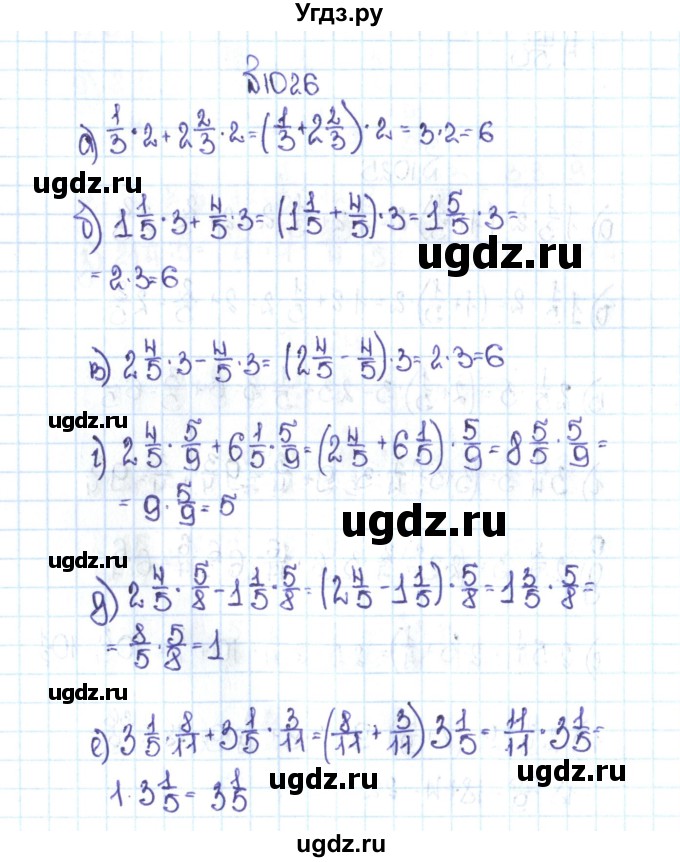 Угдз.ру
№1026
а) 1/3 · 2 + 2 2/3 · 2 = (1/3 + 2 2/3) · 2 = 3 · 2 = 6
ugdz.ru
б) 1 1/5 · 3 + 4/5 · 3 = (1 1/5 + 4/5) · 3 = 1 5/5 · 3 =
ugdz.ru
= 2 · 3 = 6
в) 2 4/5 · 3 - 4/5 · 3 = (2 4/5 - 4/5) · 3 = 2 · 3 = 6
ugdz.ru
г) 2 4/5 · 5/9 + 6 1/5 · 5/9 = (2 4/5 + 6 1/5) · 5/9 = 8 5/5 · 5/9 =
= 9 · 5/9 = 5
ugdz.ru
ugdz.ru
д) 2 4/5 · 5/8 - 1 1/5 · 5/8 = (2 4/5 - 1 1/5) · 5/8 = 1 3/5 · 5/8 =
= 8/5 · 5/8 = 1
ugdz.ru
е) 3 1/5 · 8/11 + 3 1/5 · 3/11 = (8/11 + 3/11) 3 1/5 = 11/11 · 3 1/5 =
ugdz.ru
1 · 3 1/5 = 3 1/5
ugdz.ru
ugdz.ru